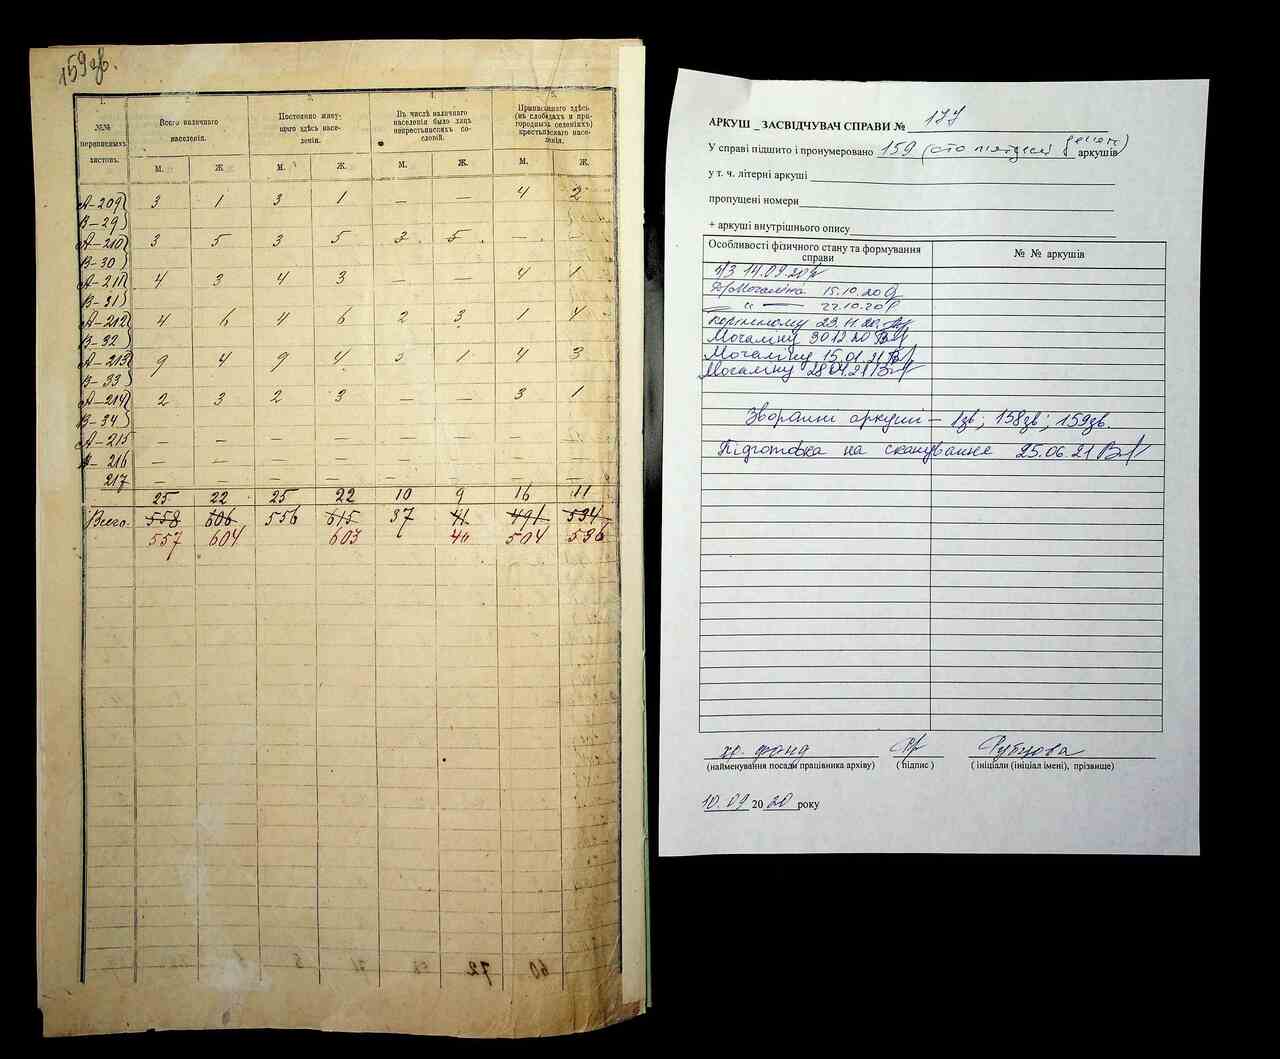 159зв.
1. 2. 3. 4. 5.
№№ переписныхъ листовъ.
Всего наличнаго населенія.
Постоянно живущаго здѣсь населенія.
Въ числѣ наличнаго населенія было лицъ некрестьянскихъ сословій.
Приписаннаго здѣсь (въ слободахъ и пригородныхъ селеніяхъ) крестьянскаго населенія.
М. Ж. М. Ж. М. Ж. М. Ж.
А-209 3 1 3 1 — — 4 2
В-29
А-210 3 5 3 5 3. 5. — —
В-30
А-211 4 3 4 3 — — 4 1
В-31
А-212 4 6 4 6 2 3 1 4
В-32
А-213 9 4 9 4 5 1 4 3
В-33
А-214 2 3 2 3 — — 3 1
В-34
А-215 — — — — — — — —
А-216 — — — — — — — —
217 — — — — — — — —
25 22 25 22 10 9 16 11
Всего 558 606 556 615 37 41 491 534
557 604 603 40 504 536
АРКУШ _ ЗАСВІДЧУВАЧ СПРАВИ № 177
У справі підшито і пронумеровано 159 (сто п'ятдесят дев'ять) аркушів
у т. ч. літерні аркуші
пропущені номери
+ аркуші внутрішнього опису
Особливості фізичного стану та формування справи
№ № аркушів
14.09.20
Могаліна 15.10.20
— " — 22.10.20
23.11.20
Могаліну 30.12.20
Могаліну 15.01.21
Могаліну 28.04.21
Зворотні аркуші – 1зв; 158зв; 159зв.
Підготовка на сканування 25.06.21
хр. фонд
Рубцова
(найменування посади працівника архіву) ( підпис ) ( ініціали (ініціал імені), прізвище)
10.09 2020 року